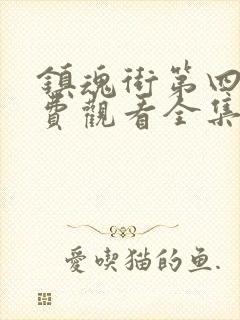 鎮魂街第四
費觀看全集
愛喫猫的鱼.